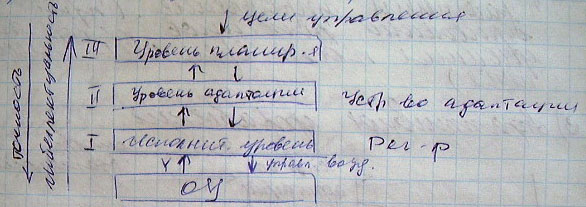 Цели управления
III Уровень планир-я
II Уровень адаптации Устр-во адаптации
I Исполнит. уровень Рег-р
Y управл. возд.
ОУ
точность
интеллектуальность